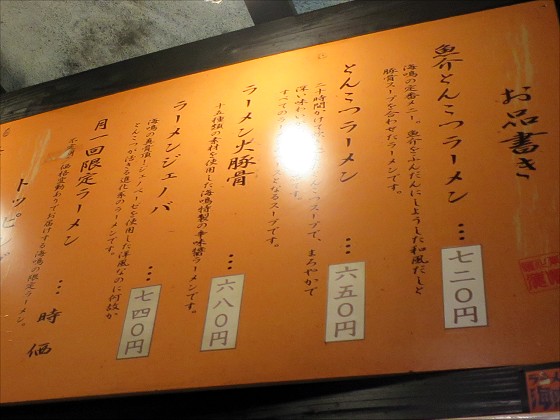 お品書き
魚介とんこつラーメン … 七二〇円
海鳴の定番メニュー。魚介をふんだんにしようした和風だしと
豚骨スープを合わせたラーメンです。
とんこつラーメン … 六五〇円
二十時間かけて
んこつスープで、まろやかで
深い味わい
です。
すべての
となるスープです。
ラーメン火豚骨 … 六八〇円
十五種類の素材を使用した海鳴特製の辛味醤ラーメンです。
ラーメンジェノバ … 七四〇円
海鳴の異質頂ージェノベーゼを使用した洋風なのに何故か
とんこつが活きる進化系のラーメンです。
月一回限定ラーメン … 時価
不定期、価格変動ありでお届けする海鳴の限定ラーメン。
トッピング